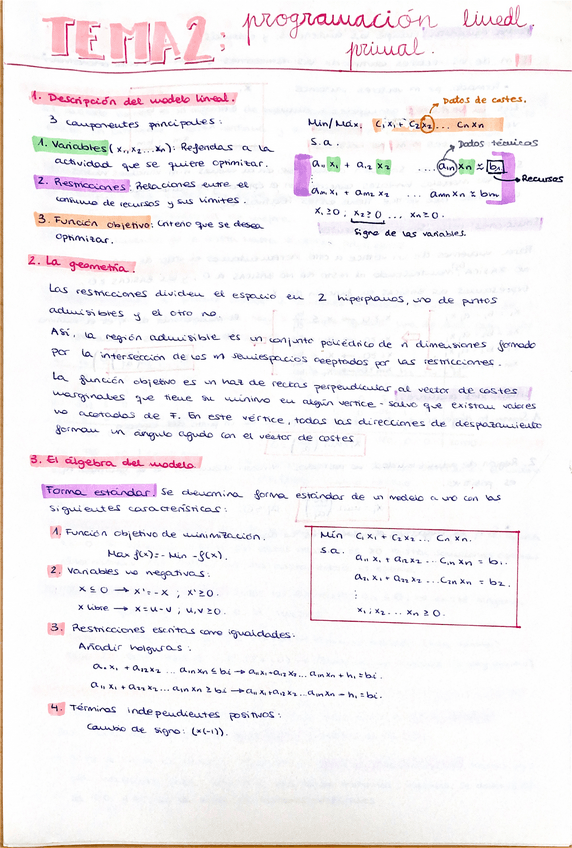 TEMA2: programación lineal.
primal.
1. Descripción del modelo lineal.
3 componentes principales:
1. Variables (x₁, x₂ ... xn): Referidas a la
actividad que se quiere optimizar.
2. Restricciones. Relaciones entre el
consumo de recursos y sus límites.
3. Función objetivo: Criterio que se desea
optimizar.
Datos de costes.
Min/Máx: C₁x₁ + C₂x₂ ... Cnxn
s.a.
Datos técnicos
a₁₁x₁ + a₁₂x₂ ... a₁n xn ≈ b₁
Recursos
⋮
am₁x₁ + am₂x₂ ... amn xn ≈ bm
x₁≥0, x₂≥0 ... xn≥0.
Signo de las variables.
2. La geometría.
Las restricciones dividen el espacio en 2 hiperplanos, uno de puntos
admisibles y el otro no.
Así, la región admisible es un conjunto poliédrico de n dimensiones formado
por la intersección de los m semiespacios aceptados por las restricciones.
La función objetivo es un haz de rectas perpendicular al vector de costes
marginales que tiene su mínimo en algún vértice - salvo que existan valores
no acotados de F. En este vértice, todas las direcciones de desplazamiento
forman un ángulo agudo con el vector de costes
3. El álgebra del modelo
Forma estándar: Se denomina forma estándar de un modelo a uno con las
siguientes características:
1. Función objetivo de minimización.
Max f(x) = - Min -f(x).
2. Variables no negativas:
x ≤ 0 → x' = -x ; x' ≥ 0.
x libre → x = u - v ; u, v ≥ 0.
Min C₁x₁ + C₂x₂ ... Cnxn.
s.a.
a₁₁x₁ + a₁₂x₂ ... C₁n xn = b₁.
a₂₁x₁ + a₂₂x₂ ... C₂n xn = b₂.
⋮
x₁, x₂ ... xn ≥ 0.
3. Restricciones escritas como igualdades.
Añadir holguras:
a₁₁x₁ + a₁₂x₂ ... a₁n xn ≤ bi → a₁₁x₁ + a₁₂x₂ ... a₁n xn + h₁ = bi.
a₁₁x₁ + a₁₂x₂ ... a₁n xn ≥ bi → a₁₁x₁ + a₁₂x₂ ... a₁n xn - h₁ = bi.
4. Términos independientes positivos:
Cambio de signo: (x(-1)).